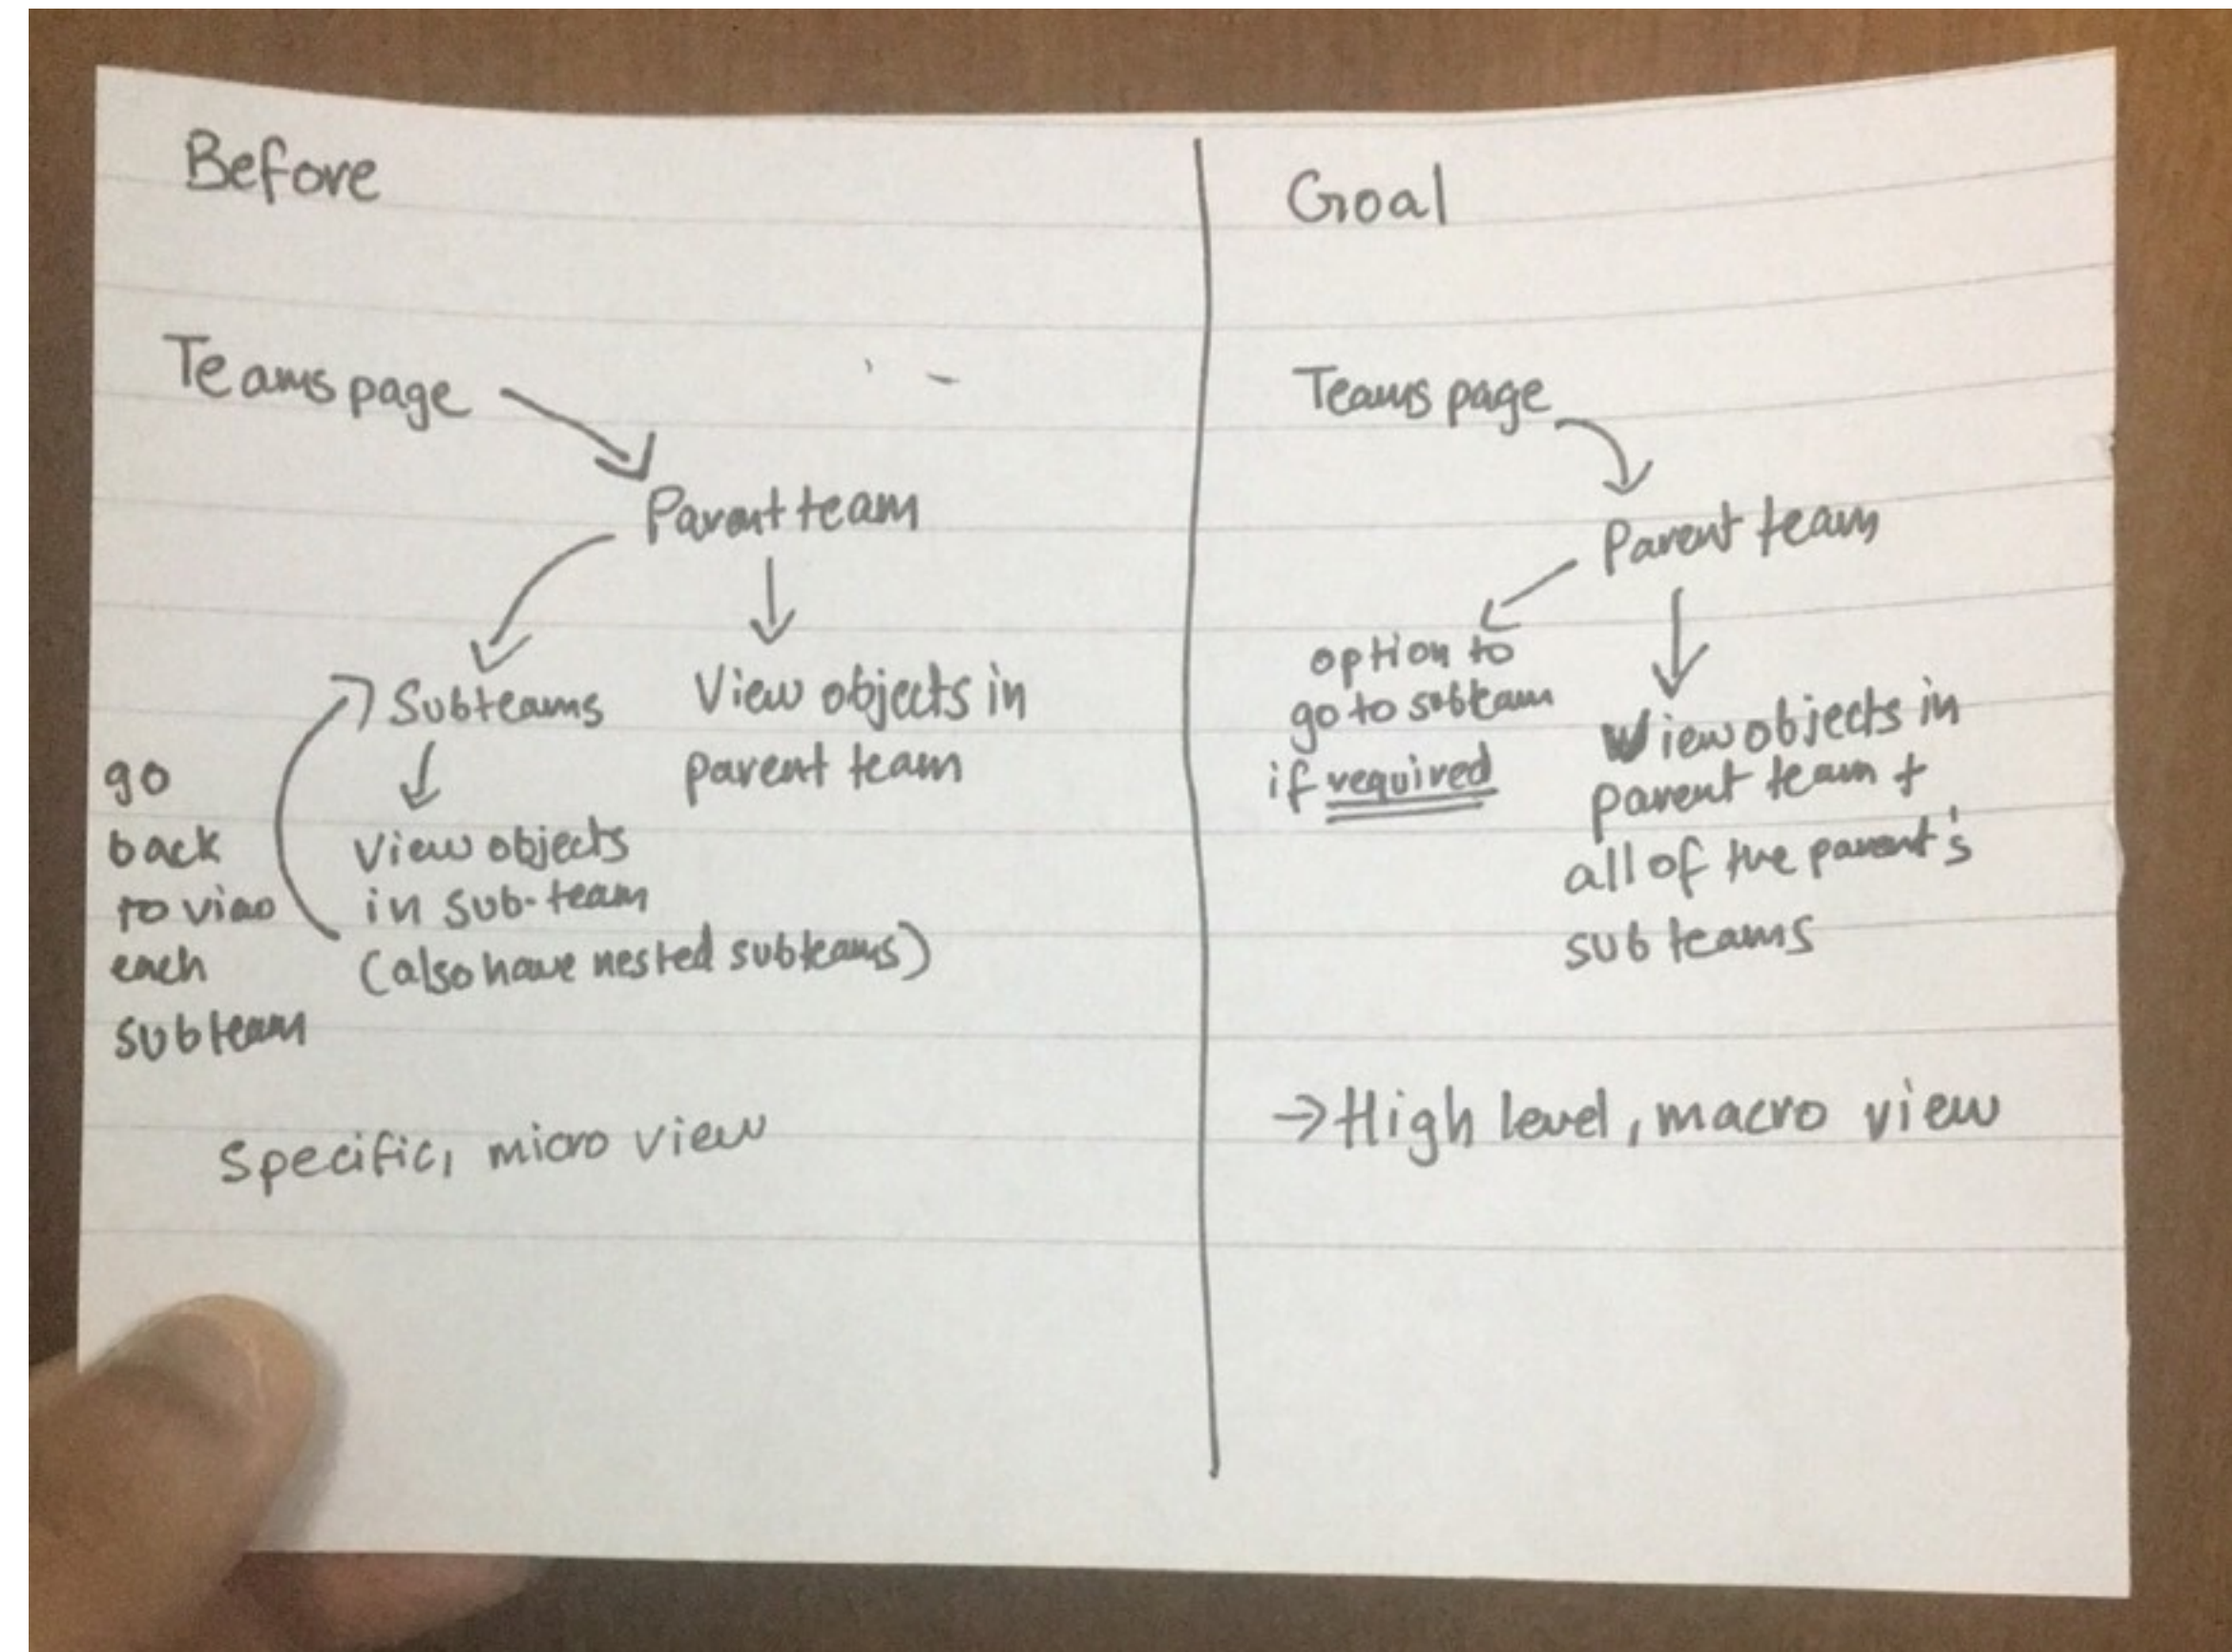 Before
Teams page
Parent team
Subteams
View objects in
parent team
View objects
in sub-team
(also have nested subteams)
go
back
to view
each
subteam
Specific, micro view
Goal
Teams page
Parent team
option to
go to subteam
if required
View objects in
parent team +
all of the parent's
sub teams
→ High level, macro view